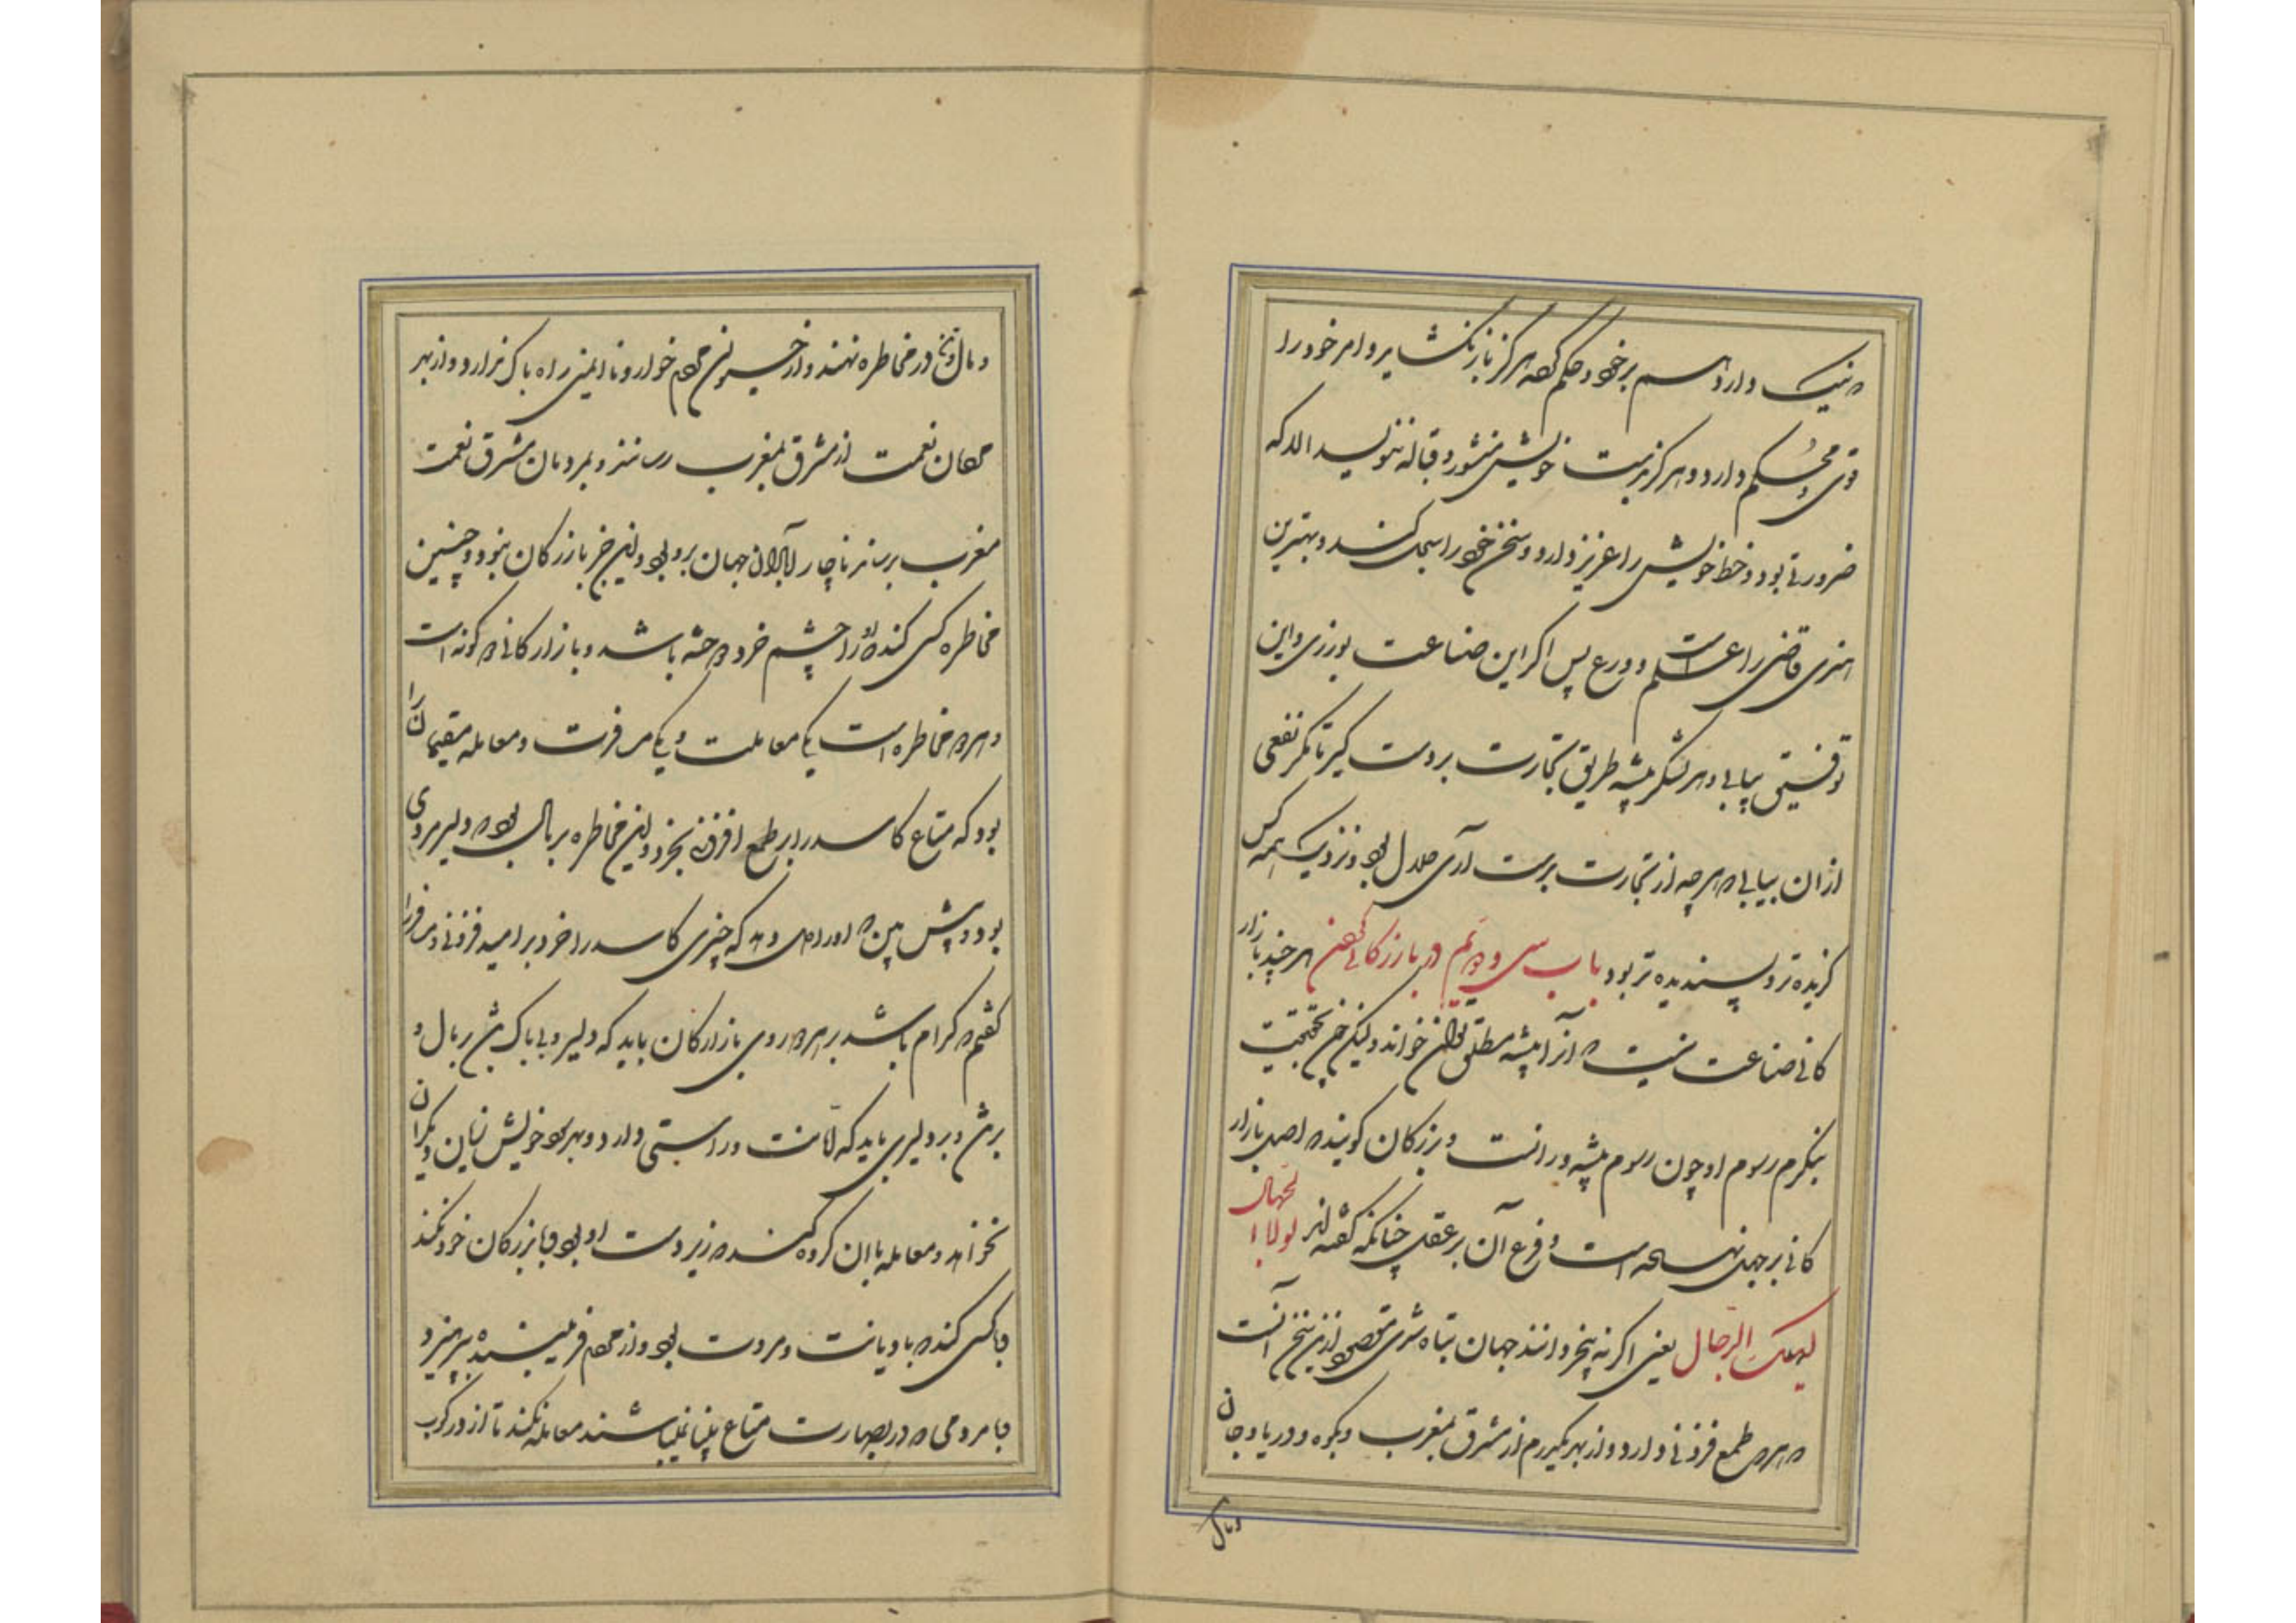 که نیک دارد اسم برخود و حکم کرده هرگز باز نگشاید و امر خود را
قوی و محکم دارد و هرگز بدست خویش منشور و قباله ننویسد الا که
ضرورتی بود و خط خویش را عزیز دارد و سخن خود را سجل کند و بهترین
هنری قاضی را علم است و ورع پس اگر این صناعت نورزی و این
توفیق نیابی و هر لشکر پیشه طریق تجارت بر دست گیر تا مگر نفعی
از ان بیابی که هر چه از تجارت بدست آری حلال بود و نزدیک همه کس
گزیده تر و پسندیده تر بود باب سی و دویم در بازرگانی کردن هر چند بازار
کانی صناعت نیست که آنرا پیشه مطلق توان خواند ولیکن چون بحقیقت
بنگرم رسوم او چون رسوم پیشه ورانست و بزرگان گویند که اصل بازار
کانی بر جهل نهاده است و فرع آن بر عقل چنانکه گفته اند لولا الجهال
لهلک الرجال یعنی اگر نه بیخردانند جهان تباه شدی مقصود ازین سخن آنست
که هر که طمع فزونی دارد و از بهر یکدرم از مشرق بمغرب و بکوه و دریا و جان
و مال
و مال و تن در مخاطره نهند و از خون مردم خوار و نا ایمنی راه باک ندارد و از بهر
مردمان نعمت از مشرق بمغرب رسانند و بمردمان مشرق نعمت
مغرب برسانند ناچار آبادانی جهان بدو بود و این جز بازرگان نبود و چنین
مخاطره کسی کند که او را چشم خرد دوخته باشد و بازارکانی دو گونه است
و هر دو مخاطره است یکی معاملت و یکی مسافرت و معامله مقیمان را
بود که متاع کاسد را بر طمع افزونی بخرد و این مخاطره بر مال بود و دلیر مردی
بود و پیش بین که او را دل دهد که چیزی کاسد را خرد بر امید فزونی و مسافر را
گفتم که کدام باشد بر هر دو روی بازارکان باید که دلیر و بی باک باشد بر مال و
بر تن و بر دلیری باید که امانت و راستی دارد و بهر سود خویش زیان دیگران
نخواهد و معامله با ان گروه کند که زیر دست او بود و با بزرگان خرد نکند
و با کسی کند که با دیانت و مروت بود و از مردم فریبنده بپرهیزد
و با مردمی که در بصارت متاع بینا نباشند معامله نکند تا از در کوب